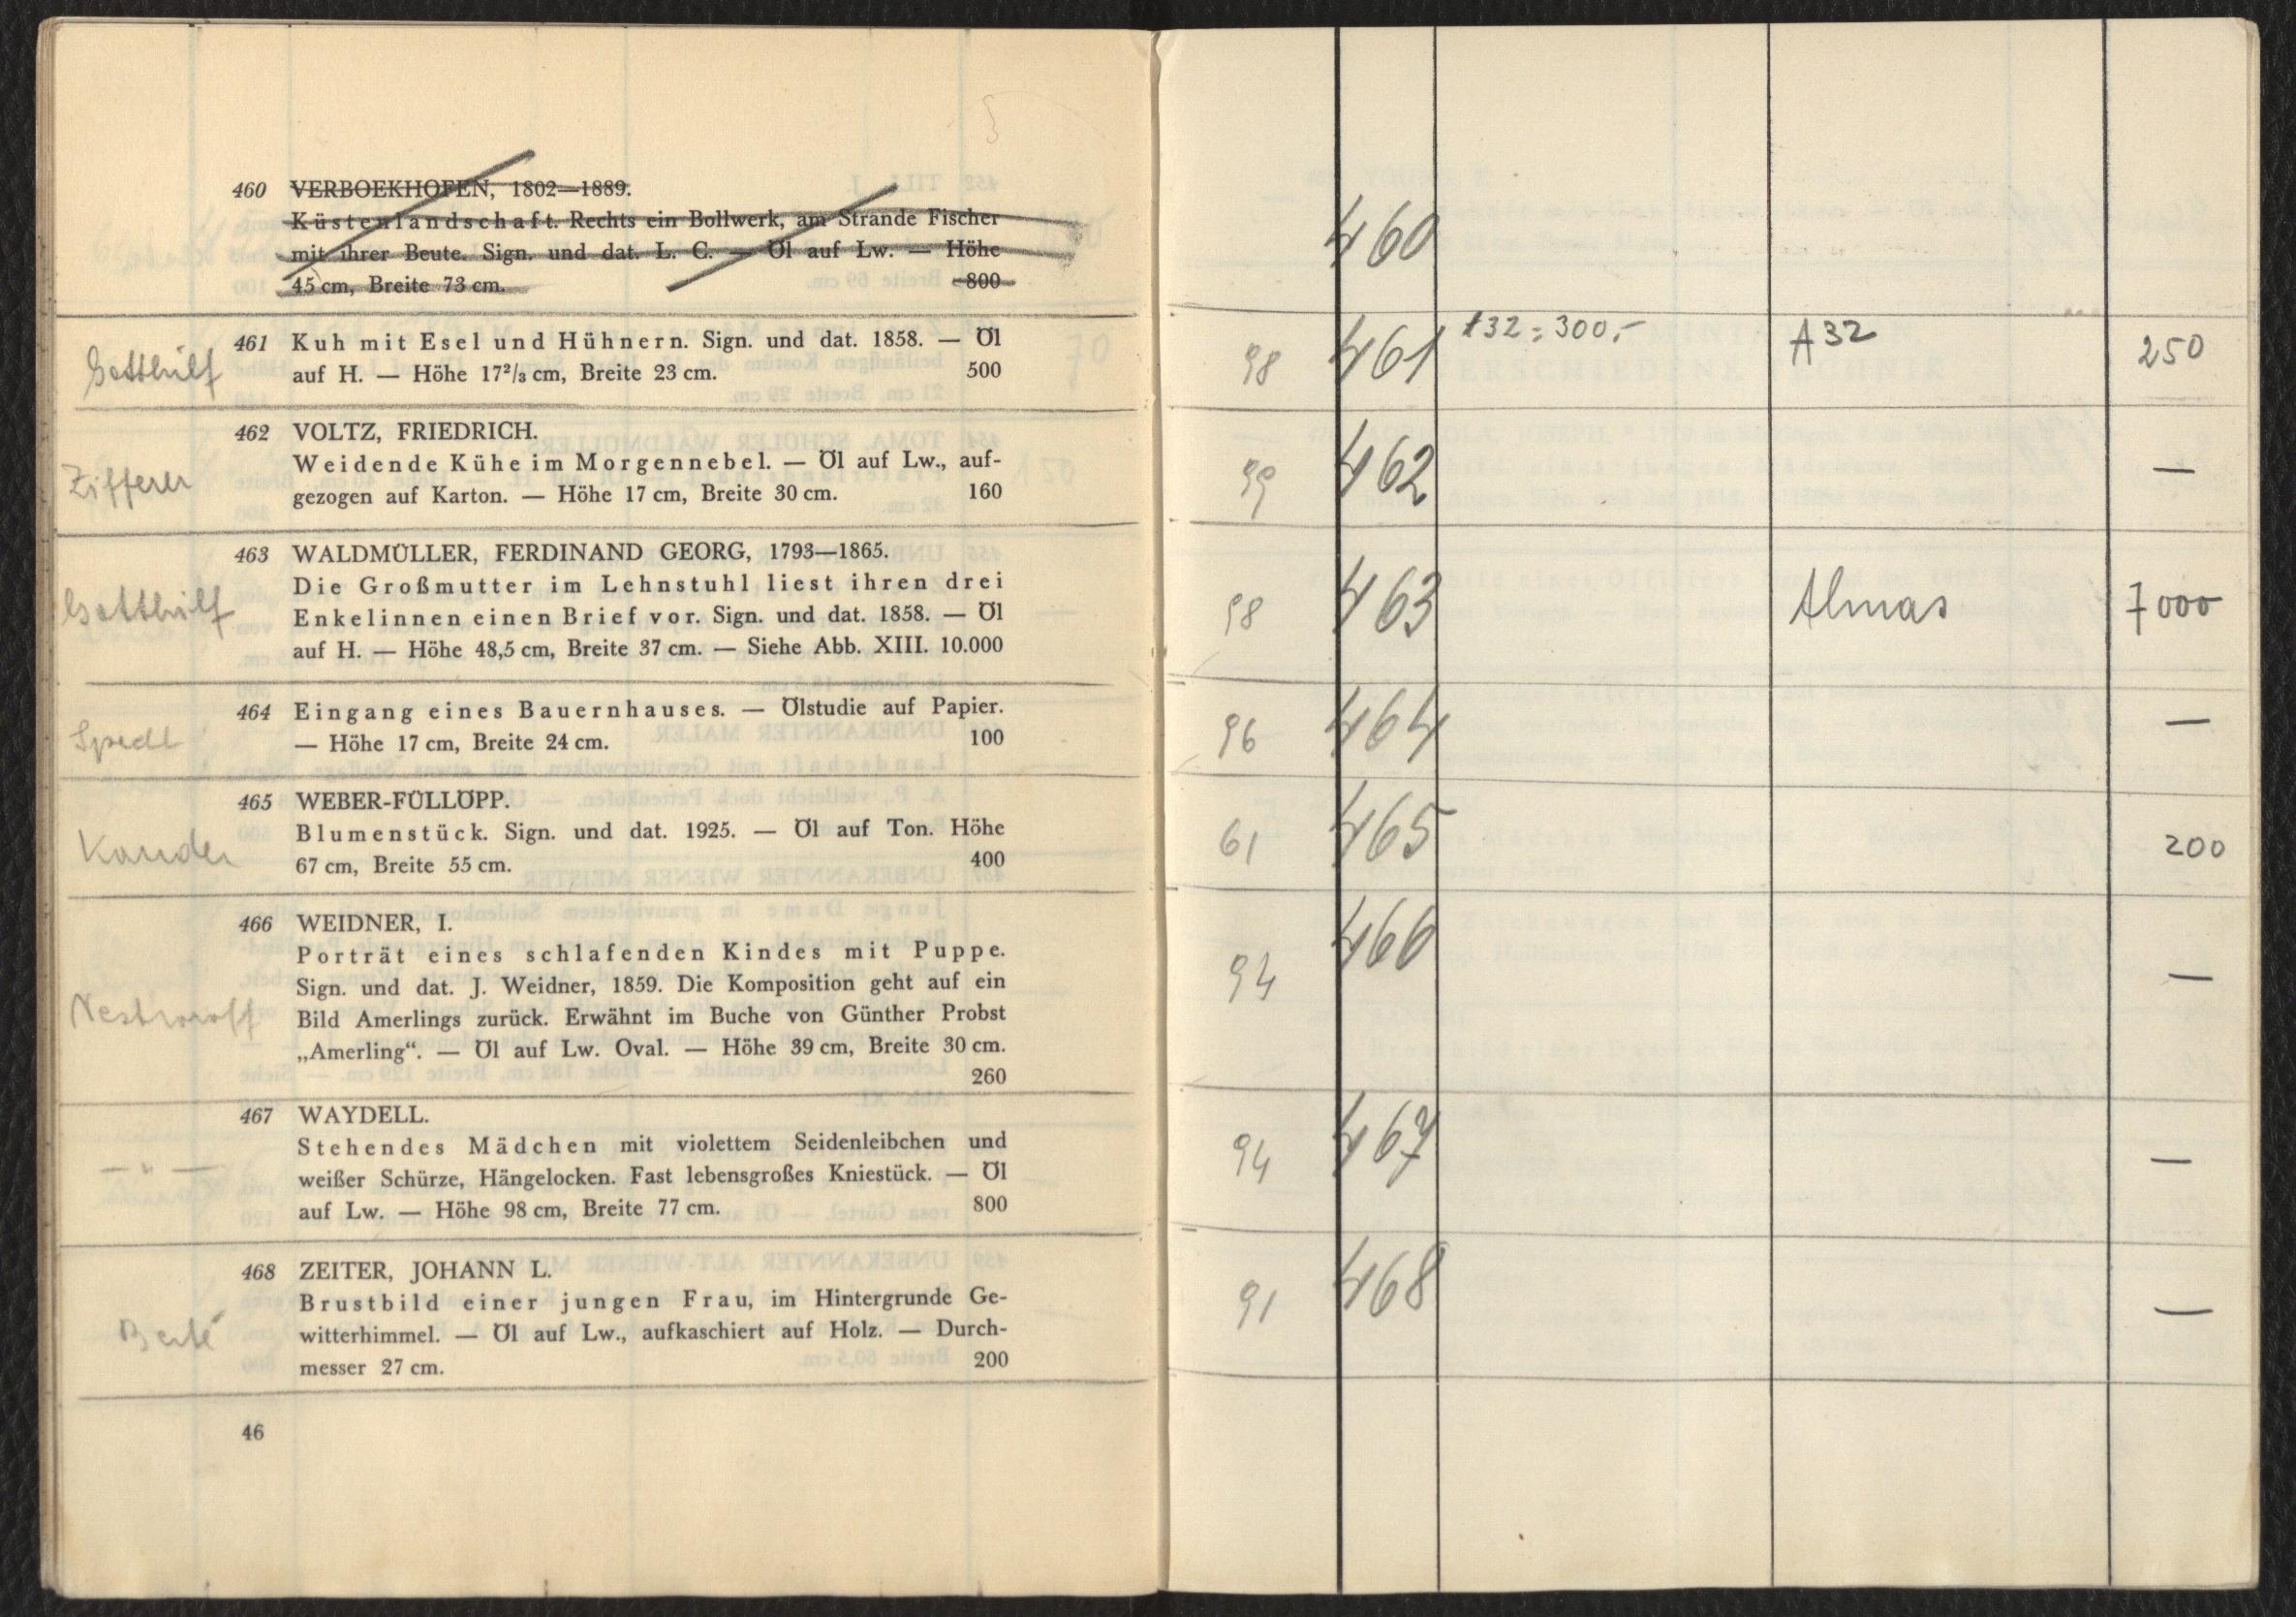 460 VERBOEKHOFEN, 1802—1889.
Küstenlandschaft. Rechts ein Bollwerk, am Strande Fischer
mit ihrer Beute. Sign. und dat. L. C. — Öl auf Lw. — Höhe
45 cm, Breite 73 cm. 800
Gotthilf
461 Kuh mit Esel und Hühnern. Sign. und dat. 1858. — Öl
auf H. — Höhe 17²/₃ cm, Breite 23 cm. 500
Zifferer
462 VOLTZ, FRIEDRICH.
Weidende Kühe im Morgennebel. — Öl auf Lw., auf-
gezogen auf Karton. — Höhe 17 cm, Breite 30 cm. 160
Gotthilf
463 WALDMÜLLER, FERDINAND GEORG, 1793—1865.
Die Großmutter im Lehnstuhl liest ihren drei
Enkelinnen einen Brief vor. Sign. und dat. 1858. — Öl
auf H. — Höhe 48,5 cm, Breite 37 cm. — Siehe Abb. XIII. 10.000
464 Eingang eines Bauernhauses. — Ölstudie auf Papier.
— Höhe 17 cm, Breite 24 cm. 100
465 WEBER-FÜLLÖPP.
Blumenstück. Sign. und dat. 1925. — Öl auf Ton. Höhe
67 cm, Breite 55 cm. 400
466 WEIDNER, I.
Porträt eines schlafenden Kindes mit Puppe.
Sign. und dat. J. Weidner, 1859. Die Komposition geht auf ein
Bild Amerlings zurück. Erwähnt im Buche von Günther Probst
„Amerling“. — Öl auf Lw. Oval. — Höhe 39 cm, Breite 30 cm.
260
— " —
467 WAYDELL.
Stehendes Mädchen mit violettem Seidenleibchen und
weißer Schürze, Hängelocken. Fast lebensgroßes Kniestück. — Öl
auf Lw. — Höhe 98 cm, Breite 77 cm. 800
468 ZEITER, JOHANN L.
Brustbild einer jungen Frau, im Hintergrunde Ge-
witterhimmel. — Öl auf Lw., aufkaschiert auf Holz. — Durch-
messer 27 cm. 200
46
460
98 461 132 = 300,- A 32 250
99 462 —
98 463 Almas 7000
96 464 —
61 465 200
94 466 —
94 467 —
91 468 —